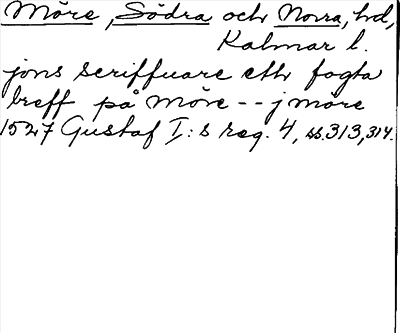 Möre, Södra och Norra, hd,
Kalmar l.
jöns scriffuare eth fogta
breff på möre -- j möre
1527 Gustaf I:s reg. 4, ss. 313, 314.